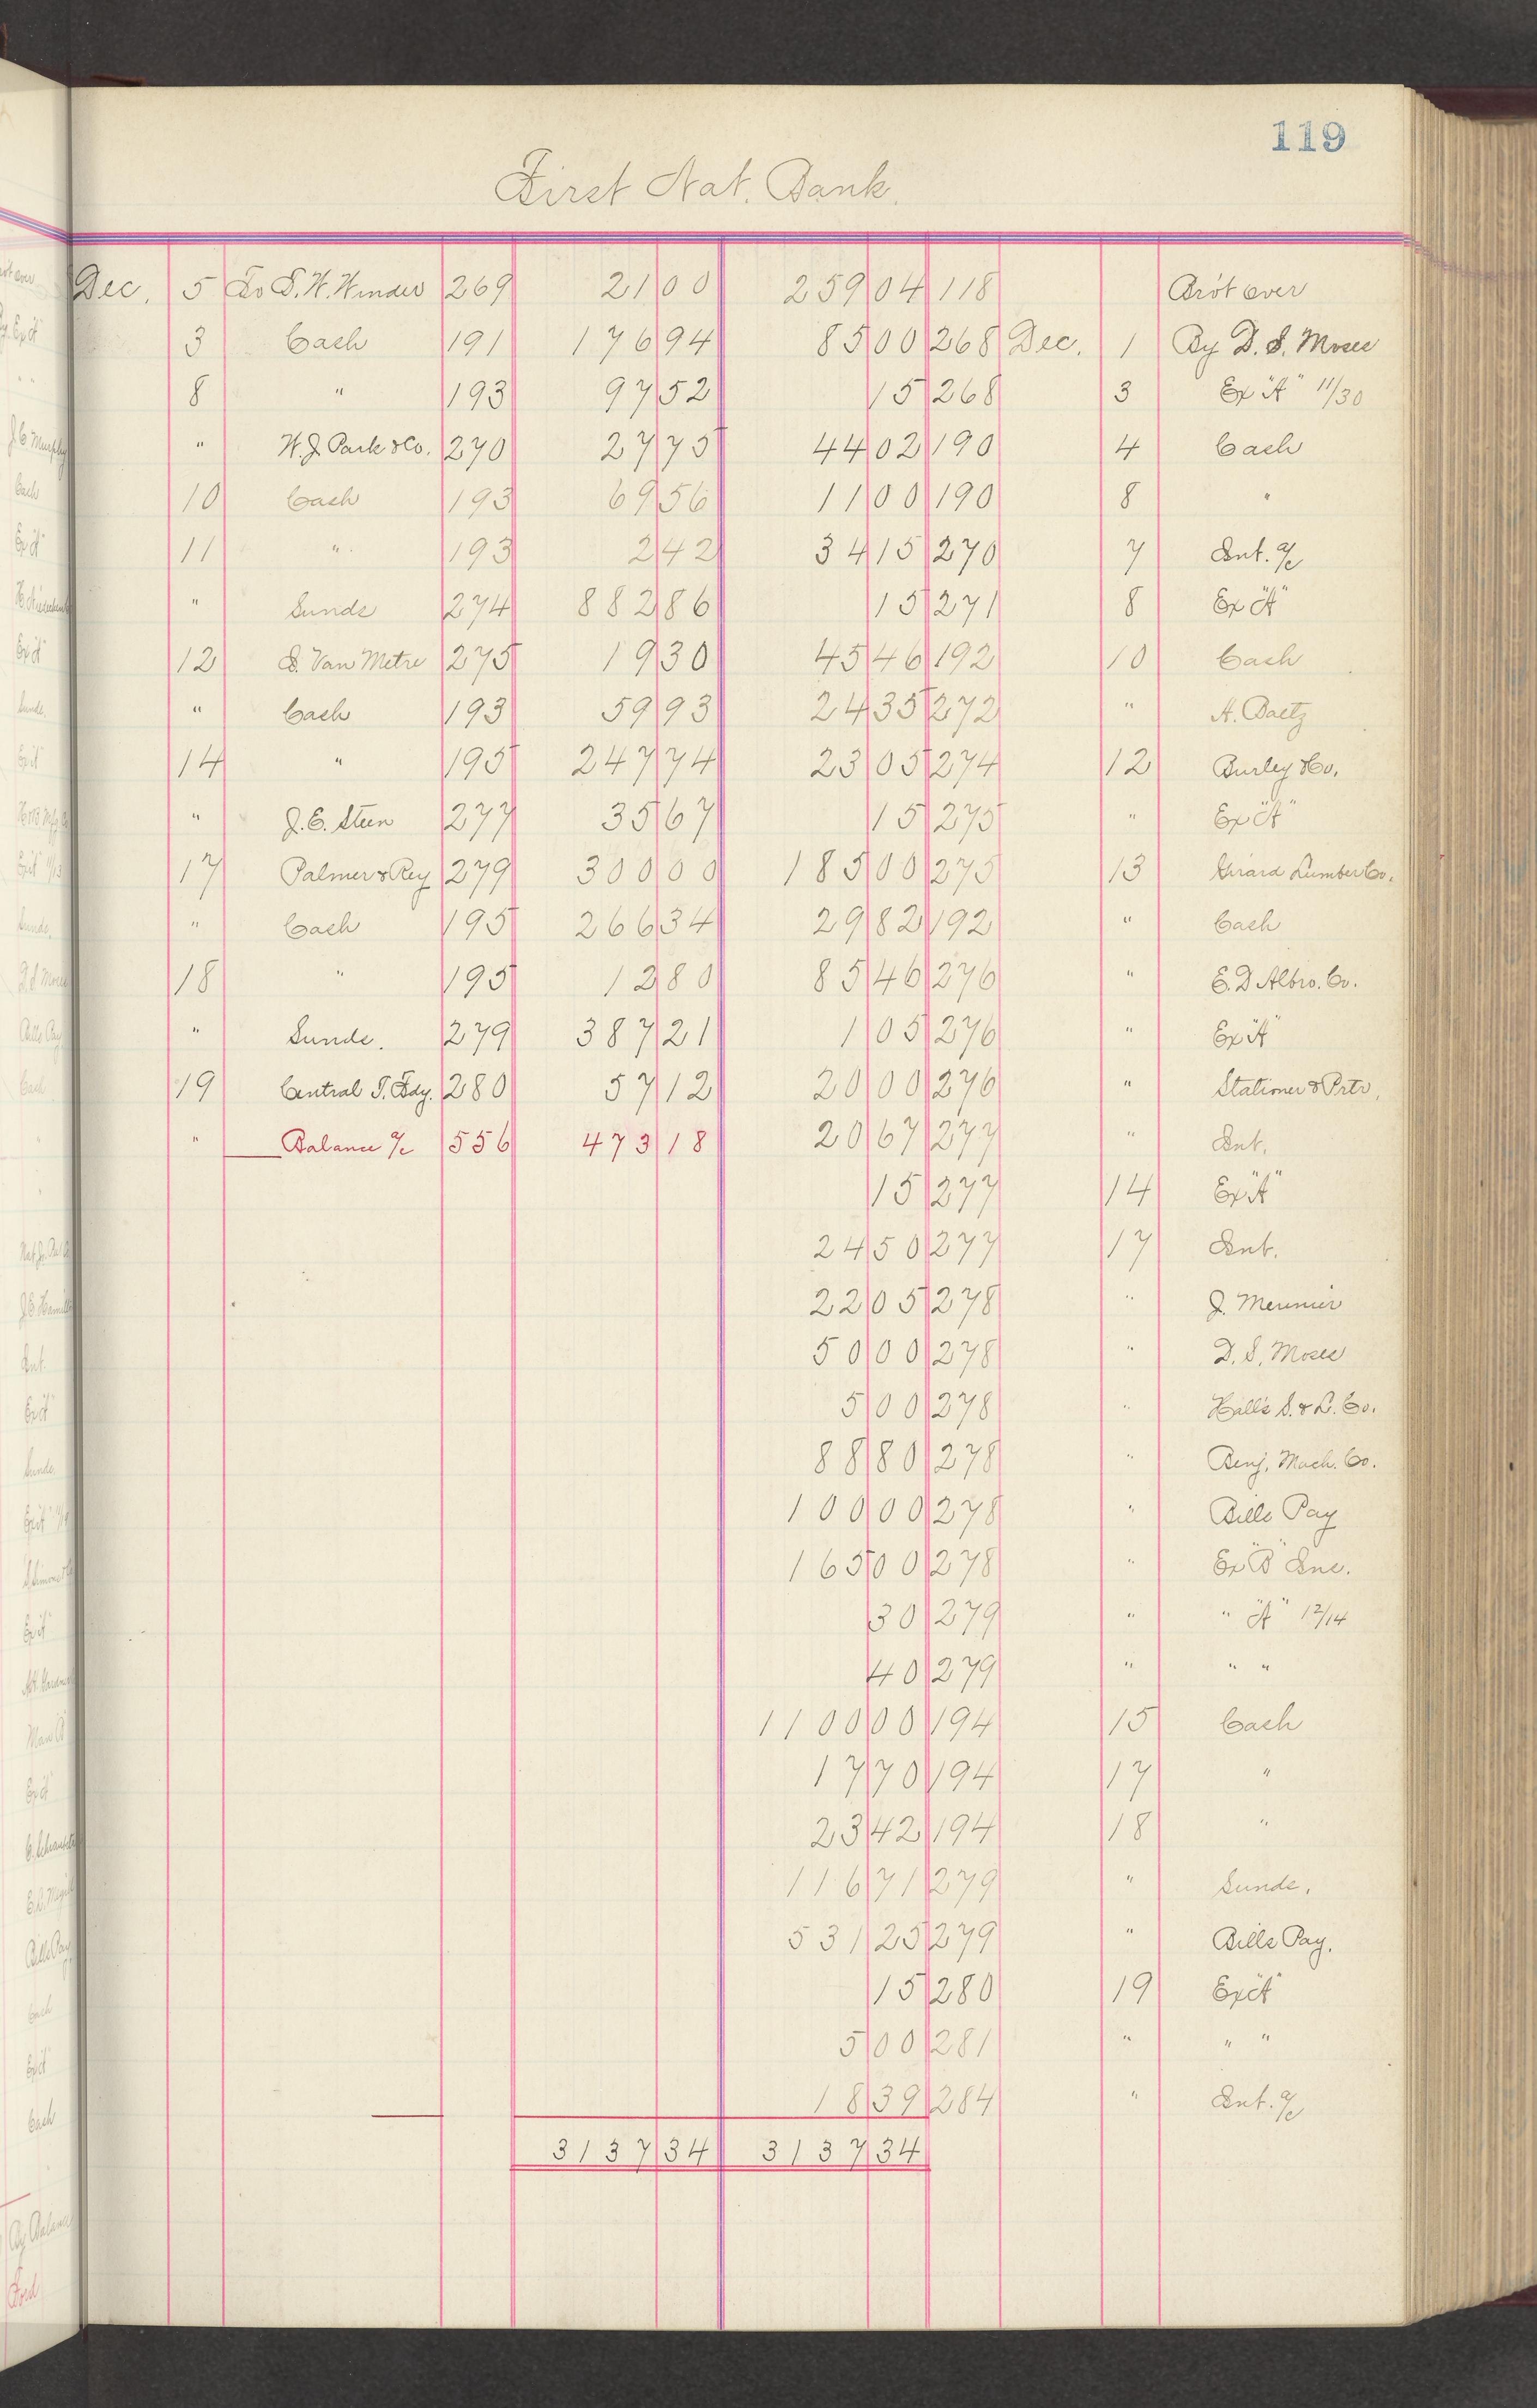 119
First Nat. Bank.
Dec. 5 To S. W. Winder 269 21 00 259 04 118 Bro't over
3 Cash 191 176 94 85 00 268 Dec. 1 By D. S. Moses
8 " 193 97 52 15 268 3 Ex "A" 11/30
" W. J. Park & Co. 270 27 75 44 02 190 4 Cash
10 Cash 193 69 56 11 00 190 8 "
11 " 193 2 42 34 15 270 7 Int. a/c
" Sunds 274 882 86 15 271 8 Ex "A"
12 S. Van Metre 275 19 30 45 46 192 10 Cash
" Cash 193 59 93 24 35 272 " A. Baetz
14 " 195 247 74 23 05 274 12 Burley & Co.
" J. E. Steen 277 35 67 15 275 " Ex "A"
17 Palmer & Rey 279 300 00 185 00 275 13 Girard Lumber Co.
" Cash 195 266 34 29 82 192 " Cash
18 " 195 12 80 85 46 276 " E. D Albro. Co.
" Sunds. 279 387 21 1 05 276 " Ex "A"
19 Central T. Fdy. 280 57 12 20 00 276 " Stationer & Prtr.
" Balance a/c 556 473 18 20 67 277 " Int.
15 277 14 Ex "A"
24 50 277 17 Int.
22 05 278 " J. Meunier
50 00 278 " D. S. Moses
5 00 278 " Hall's S. & L. Co.
88 80 278 " Benj. Mach. Co.
100 00 278 " Bills Pay
165 00 278 " Ex "B" Inc.
30 279 " " "A" 12/14
40 279 " " "
1100 00 194 15 Cash
17 70 194 17 "
23 42 194 18 "
116 71 279 " Sunds.
531 25 279 " Bills Pay.
15 280 19 Ex "A"
5 00 281 " " "
18 39 284 " Int. a/c
3137 34 3137 34